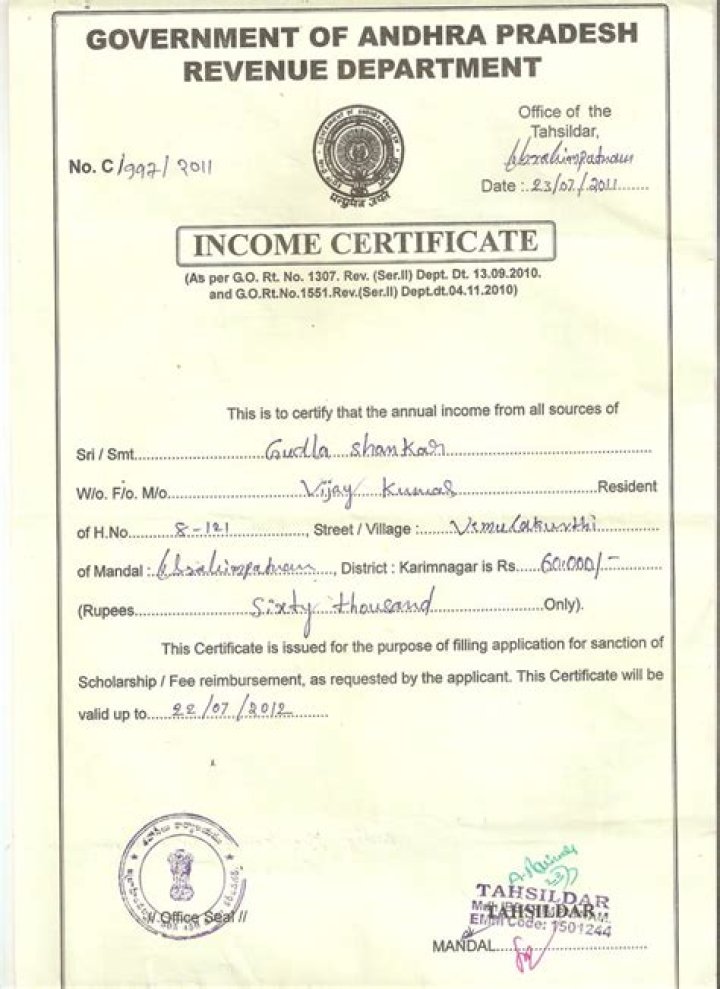 GOVERNMENT OF ANDHRA PRADESH
REVENUE DEPARTMENT
Office of the
Tahsildar,
Ibrahimpatnam
No. C/997/2011
Date : 23/07/2011
INCOME CERTIFICATE
(As per G.O. Rt. No. 1307. Rev. (Ser.II) Dept. Dt. 13.09.2010.
and G.O.Rt.No.1551.Rev.(Ser.II) Dept.dt.04.11.2010)
This is to certify that the annual income from all sources of
Sri / Smt. Gudla Shankar
W/o. F/o. M/o. Vijay Kumar Resident
of H.No. 8-121, Street / Village : Vemulakurthi
of Mandal : Ibrahimpatnam, District : Karimnagar is Rs. 60.000/-
(Rupees Sixty thousand Only).
This Certificate is issued for the purpose of filling application for sanction of
Scholarship / Fee reimbursement, as requested by the applicant. This Certificate will be
valid up to 22/07/2012
// Office Seal //
TAHSILDAR
TAHSILDAR
EMM Code: 1501244
MANDAL